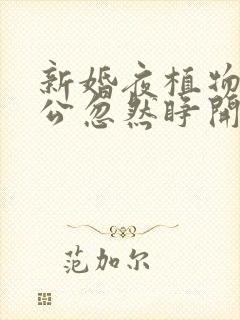 新婚夜植物
公忽然睁开
范加尔